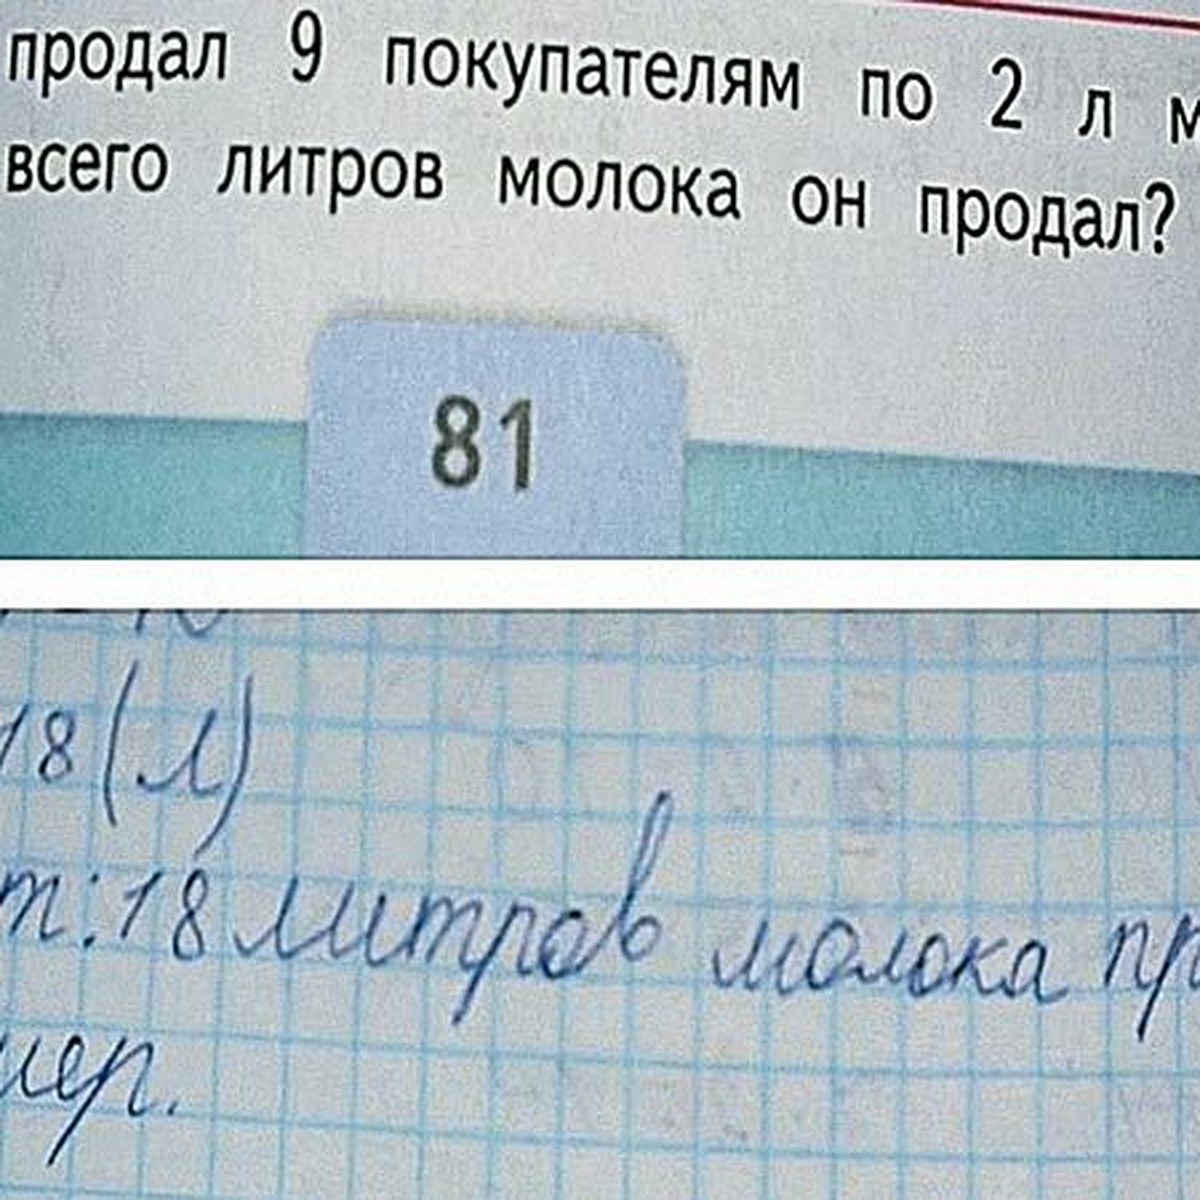 продал 9 покупателям по 2 л м
всего литров молока он продал?
81
18 (л)
т: 18 литров молока пр
мер.